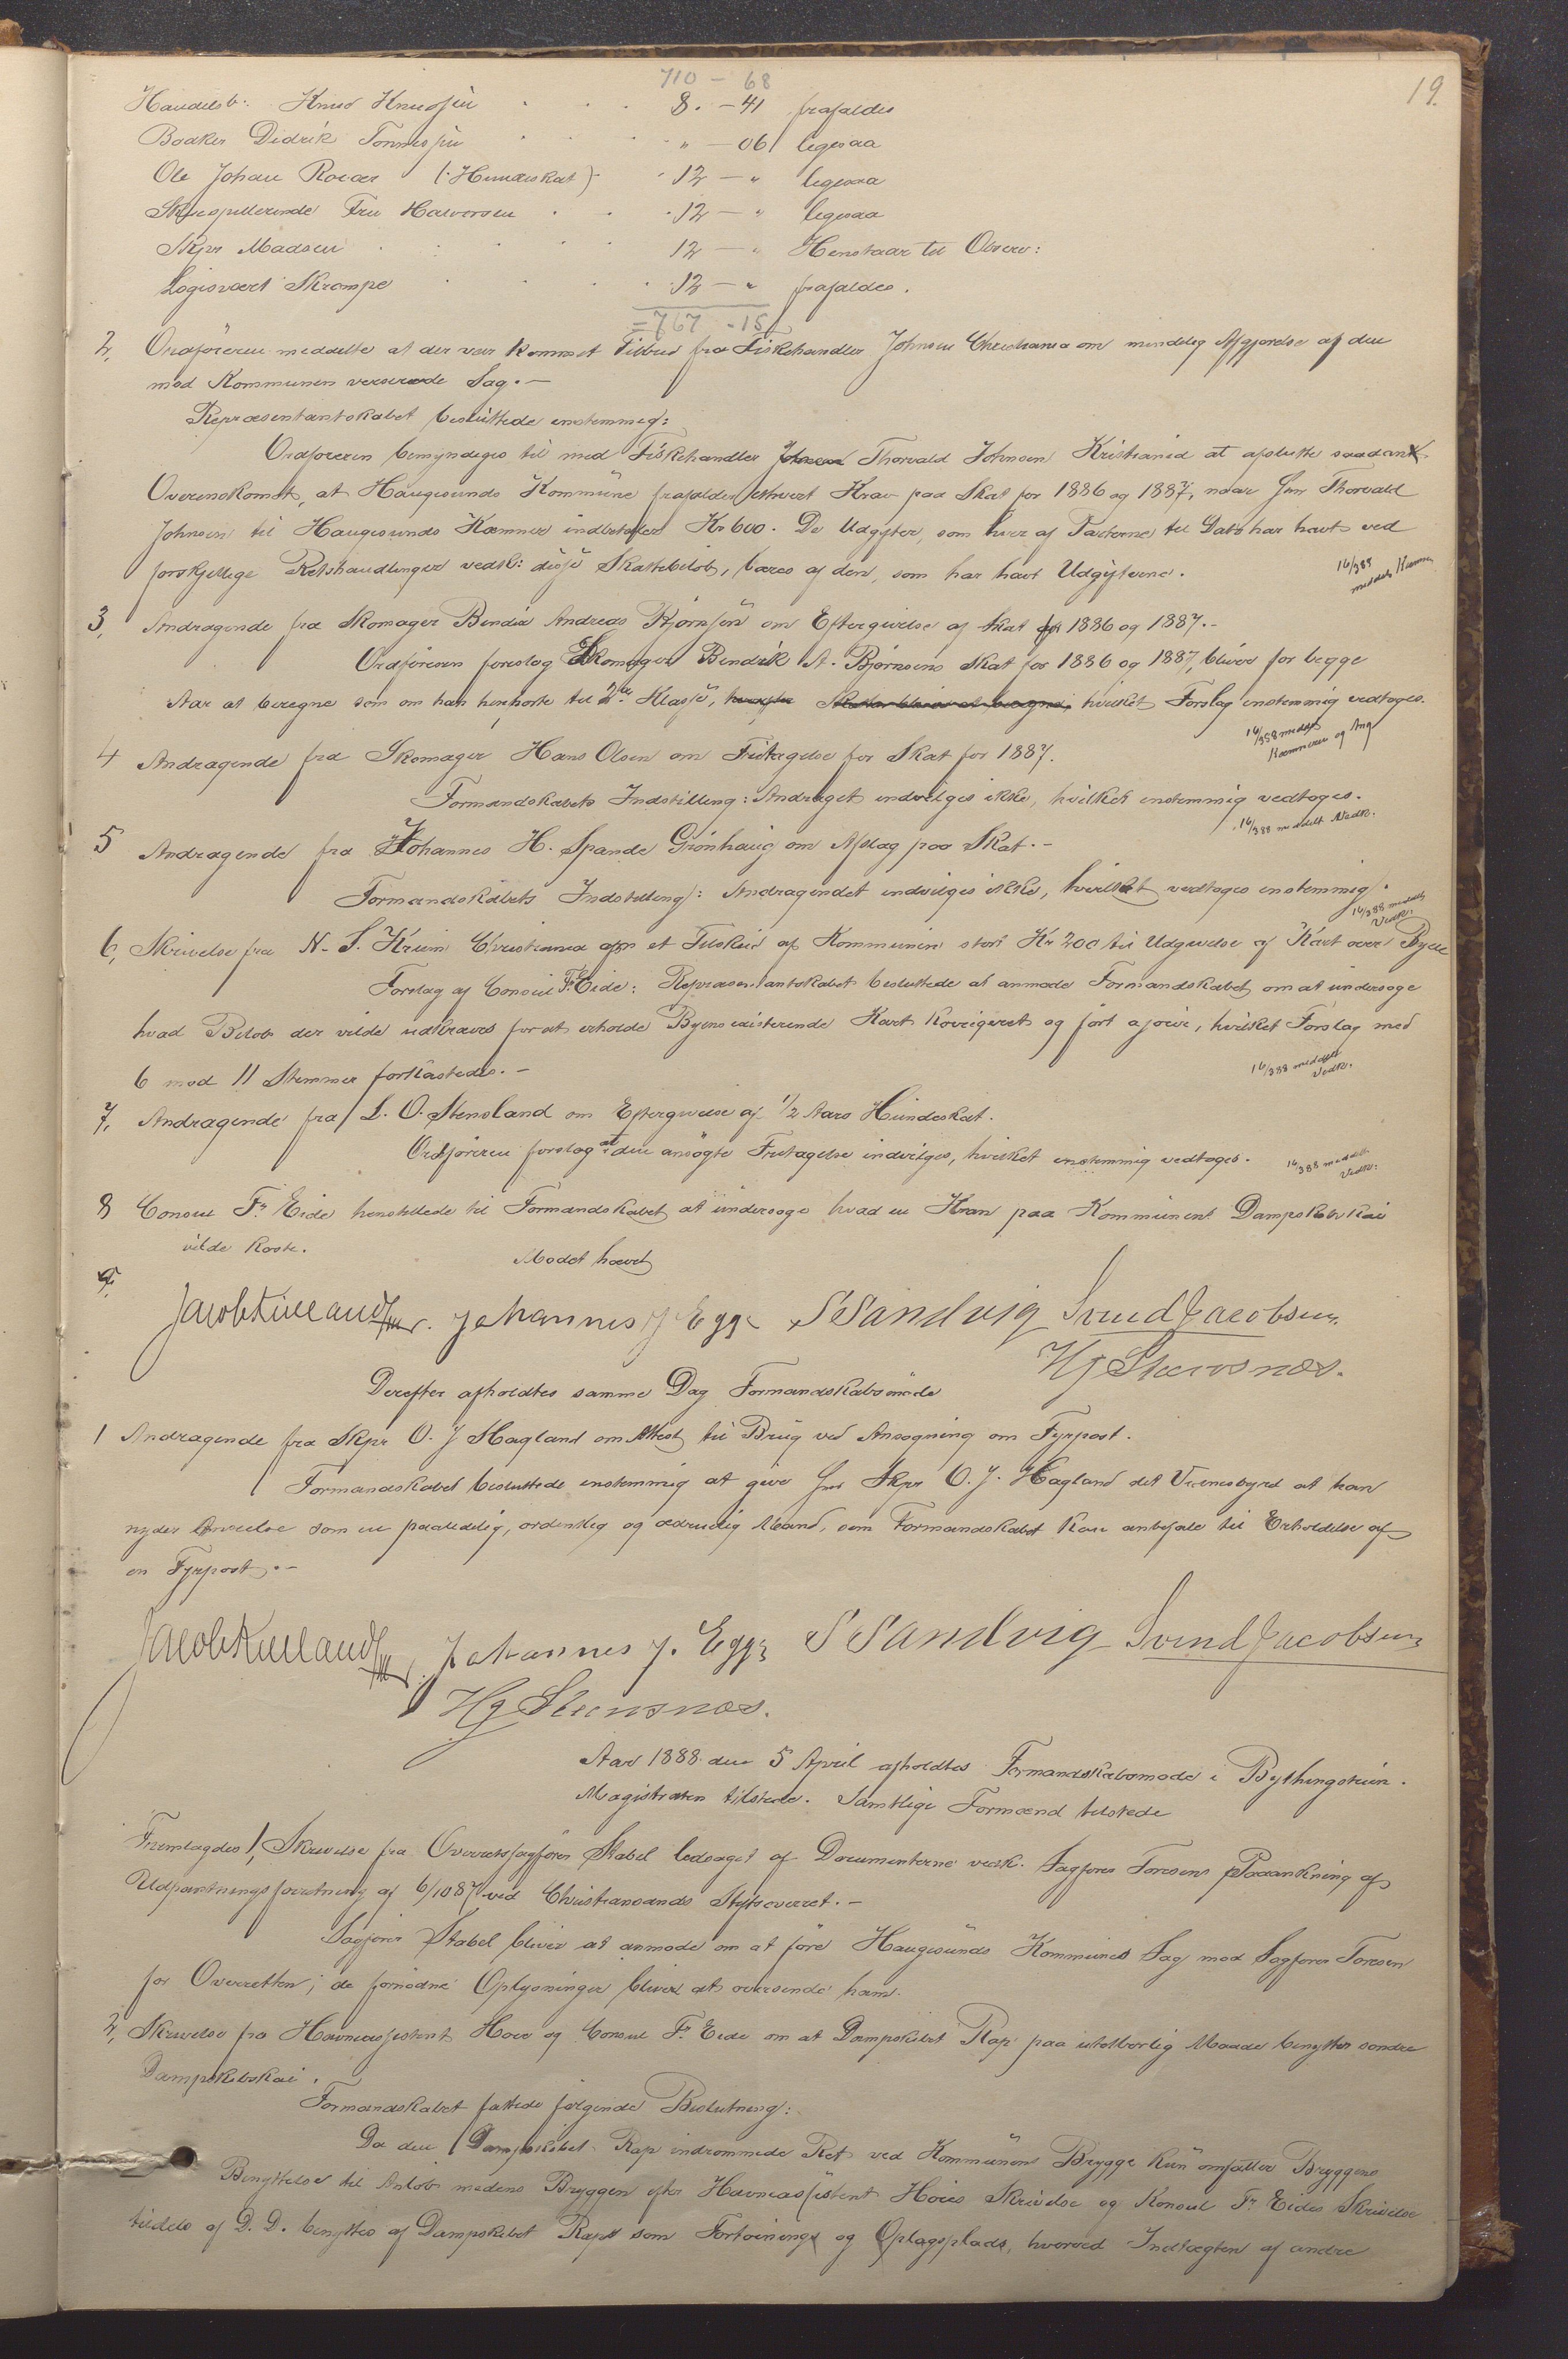 19.
710 - 68
Handelsb: Knud Knudsen . . . 8. - 41 frafaldes
Bødker Didrik Tønnesen . . . " - 06 ligesaa
Ole Johan (: Hundeskat) . 12 - " ligesaa
Skuespillerinde Fru Halvorsen . . 12 - " ligesaa
Skpr Madsen . . . 12 - " Henstaar til Observ:
Logisvært Skrampe . . . 12 - " frafaldes.
= 767 - 15
2, Ordføreren meddelte at der var kommet Tilbud fra Fiskehandler Johnsen Christiania om mindelig Afgjørelse af den
mod Kommunen verserende Sag. -
Repræsentantskabet besluttede enstemmig:
Ordføreren bemyndiges til med Fiskehandler Thorvald Johnsen Kristiania at afslutte saadan
Overenskomst, at Haugesunds Kommune frafalder ethvert Krav paa Skat for 1886 og 1887, naar Hr Thorvald
Johnsen til Haugesunds Kæmner indbetaler Kr 600. De Udgifter, som hver af Parterne til Dato har havt ved
forskjellige Retshandlinger vedk: disse Skattebeløb, bæres af den, som har havt Udgifterne.
16/388 meddelt Kæmner
3, Andragende fra Skomager Bendix Andreas Bjørnsen om Eftergivelse af Skat for 1886 og 1887. -
Ordføreren foreslog Skomager Bendik A. Bjørnsens Skat for 1886 og 1887, bliver for begge
Aar at beregne som om han henhørte til 2den Klasse, hvilket Forslag enstemmig vedtoges.
16/388 meddelt Kæmneren og Ang
4 Andragende fra Skomager Hans Olsen om Fritagelse for Skat for 1887.
Formandskabets Indstilling: Andraget indvilges ikke, hvilket enstemmig vedtoges.
16/388 meddelt Vedk.
5 Andragende fra Johannes H. Spande Grønhaug om Afslag paa Skat. -
Formandskabets Indstilling: Andragendet indvilges ikke, hvilket vedtoges enstemmig.
16/388 meddelt Vedk.
6, Skrivelse fra N. S. Krum Christiania om et Tilskud af Kommunen stort Kr 200 til Udgivelse af Kart over Byen
Forslag af Consul Fr. Eide: Repræsentantskabet besluttede at anmode Formandskabet om at undersøge
hvad Beløb der vilde udkræves for at erholde Byens existerende Kart korrigeret og ført ajour, hvilket Forslag med
6 mod 11 Stemmer forkastedes. -
16/388 meddelt Vedk.
7, Andragende fra L. O. Stensland om Eftergivelse af 1/2 Aars Hundeskat.
Ordføreren foreslog at den ansøgte Fritagelse indvilges, hvilket enstemmig vedtoges.
16/388 meddelt Vedk:
8 Consul Fr. Eide henstillede til Formandskabet at undersøge hvad en Kran paa Kommunens Dampskibskai
vilde koste.
Mødet hævet
Jacob Kielland Johannes J Egge S Sandvig Svend Jacobsen
Hg Steensnæs.
Derefter afholdtes samme Dag Formandskabsmøde
1 Andragende fra Skpr O. J Hagland om Attest til Brug ved Ansøgning om Fyrpost.
Formandskabet besluttede enstemmig at give Hr Skpr O. J. Hagland det Vidnesbyrd at han
nyder Anseelse som en paalidelig, ordentlig og ædruelig Mand, som Formandskabet kan anbefale til Erholdelse af
en Fyrpost. -
Jacob Kielland Johannes J. Egge S Sandvig Svend Jacobsen
Hg Steensnæs.
Aar 1888 den 5 April afholdtes Formandskabsmøde i Bythingstuen.
Magistraten tilstede. Samtlige Formænd tilstede
Fremlagdes 1, Skrivelse fra Overretssagfører Stabel ledsaget af Documenterne vedk. Sagfører Toresens Paaankning af
Udpantningsforretning af 6/10 87 ved Christiansands Stiftsoverret. -
Sagfører Stabel bliver at anmode om at føre Haugesunds Kommunes Sag mod Sagfører Toresen
for Overretten; de fornødne Oplysninger bliver at oversende ham.
2, Skrivelse fra Havneassistent Høie og Consul Fr. Eide om at Dampskibet Rap paa utilbørlig Maade benytter søndre
Dampskibskai.
Formandskabet fattede følgende Beslutning:
Da den Dampskibet Rap indrømmede Ret ved Kommunens Brygge kun omfatter Bryggens
Benyttelse til Anløb medens Bryggen efter Havneassistent Høies Skrivelse og Konsul Fr. Eides Skrivelse
tildels af D. D. benyttes af Dampskibet Rap som Fortøinings og Oplagsplads, hvorved Indtægten af andre